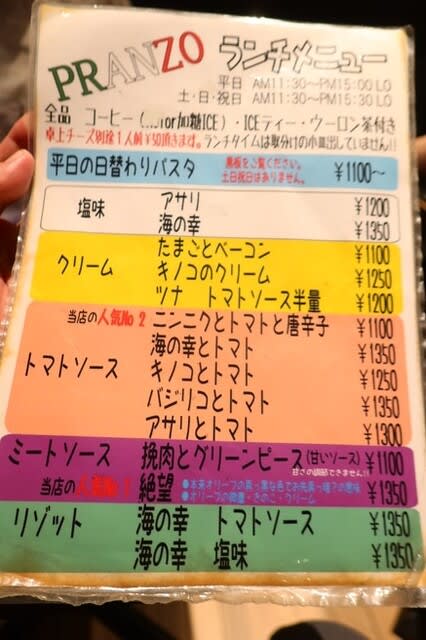 PRANZO ランチメニュー
平日 AM11:30〜PM15:00 LO
土・日・祝日 AM11:30〜PM15:30 LO
全品 コーヒー(HOTor加糖ICE)・ICEティー・ウーロン茶付き
卓上チーズ別途1人前¥50頂きます。ランチタイムは取分けの小皿出していません!!
平日の日替わりパスタ 黒板をご覧ください。 ¥1100〜
土日祝日はありません。
塩味 アサリ ¥1200
海の幸 ¥1350
クリーム たまごとベーコン ¥1100
キノコのクリーム ¥1250
ツナ トマトソース半量 ¥1200
当店の人気No 2 ニンニクとトマトと唐辛子 ¥1100
トマトソース 海の幸とトマト ¥1350
キノコとトマト ¥1250
バジリコとトマト ¥1350
アサリとトマト ¥1300
ミートソース 挽肉とグリーンピース(甘いソース) ¥1100
甘さの調節できません!!
当店の人気No 1 絶望 ¥1350
リゾット 海の幸 トマトソース ¥1350
海の幸 塩味 ¥1350